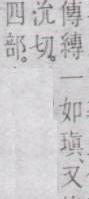 傳縛一如瑱、又
沇切。
四部。